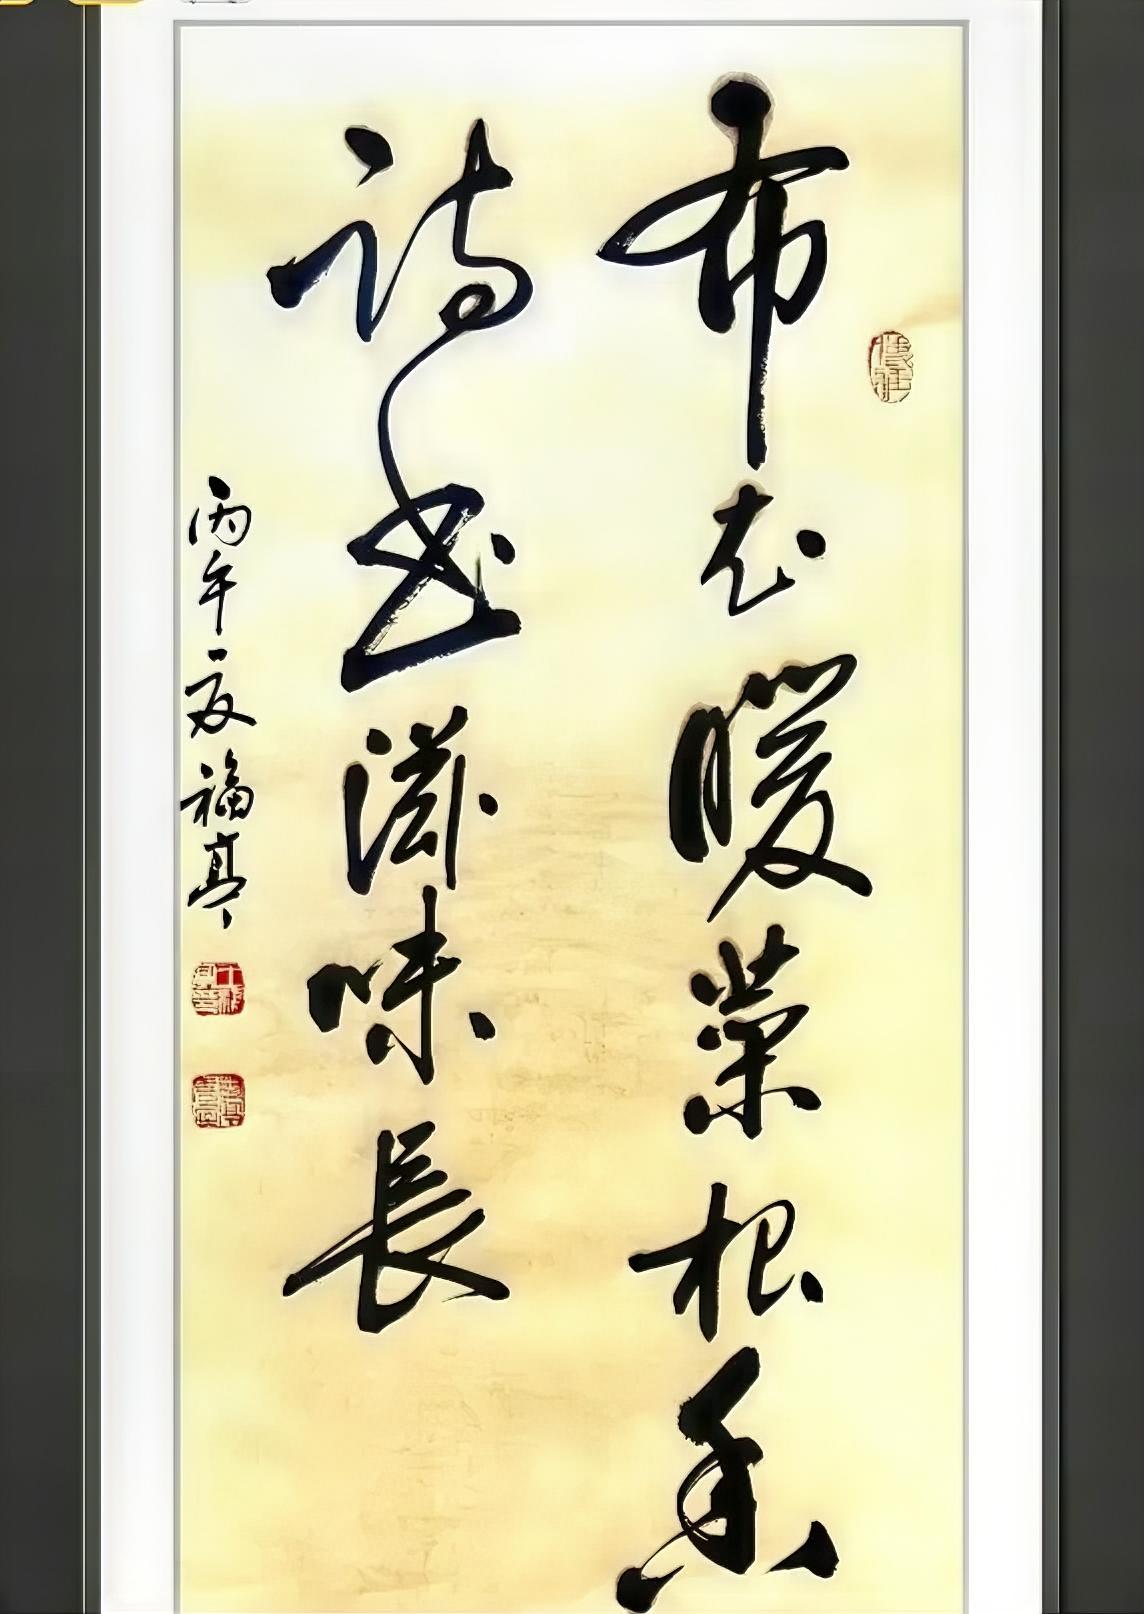 布衣暖菜根香
詩书滋味長
丙午夏福亭